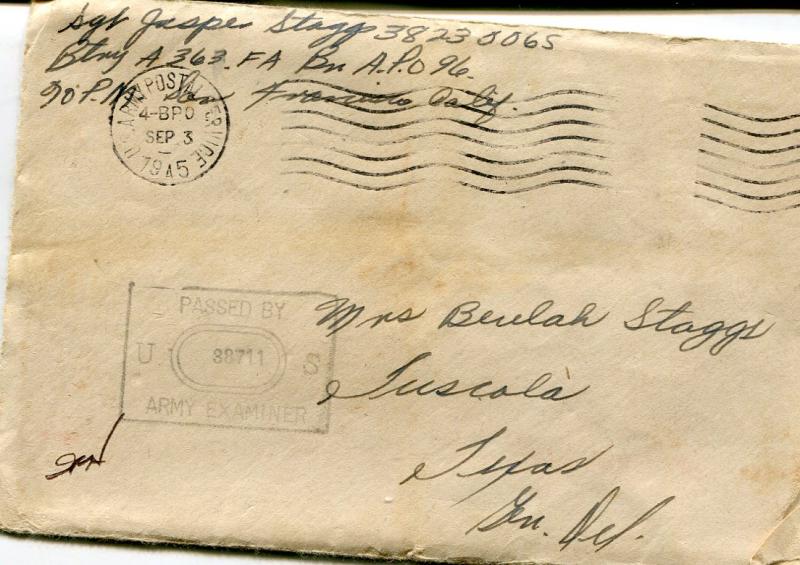 Sgt Jasper Staggs 38230065
Btry A 363. FA Bn A.P.O 96.
% P.M. San Francisco Calif.
U.S. ARMY POSTAL SERVICE
4-BPO
SEP 3
1945
PASSED BY
U 38711 S
ARMY EXAMINER
Mrs Beulah Staggs
Tuscola
Texas
Gen. Del.